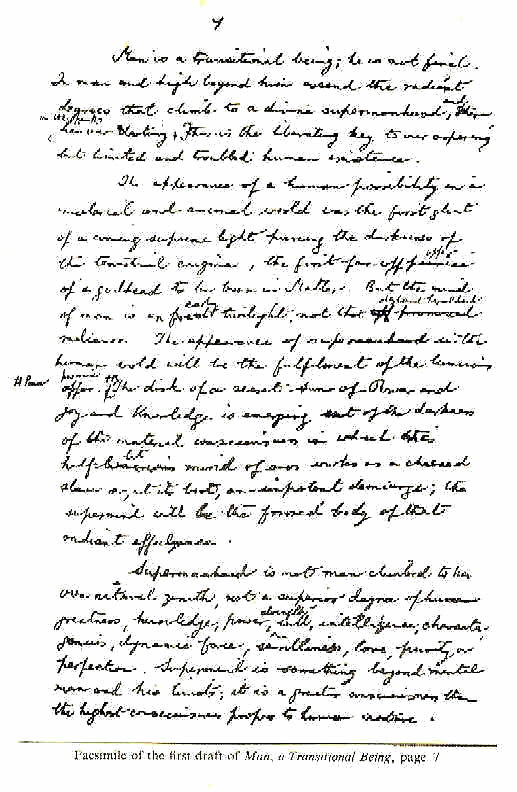 7
Man is a transitional being; he is not final.
In man and high beyond him ascend the radiant
degrees that climb to a divine supermanhood, and
our destiny; the liberating key to our aspiring
but limited and troubled human existence.
The appearance of a human possibility in a
material and animal world was the first glint
of a coming supreme light piercing the darkness of
this terrestrial , the first far
of a godhead to be born in Matter. But the mind
of man is an early twilight, not that
radiance. The appearance of supermanhood in the
human world will be the fulfilment of the luminous
A Power
The disk of a secret sun of Power and
Joy and Knowledge is emerging out of the darkness
of the material consciousness in which this
half-lit mind of ours works as a chained
slave or, at its best, an impotent demiurge; the
supermind will be the formed body of that
radiant effulgence.
Supermanhood is not man climbed to his
own natural zenith, not a superior degree of human
greatness, knowledge, power, will, intelligence, character,
genius, dynamic force, saintliness, love, purity or
perfection. Supermind is something beyond mental
man and his limits; it is a greater consciousness than
the highest consciousness proper to human nature.
Facsimile of the first draft of Man, a Transitional Being, page 7